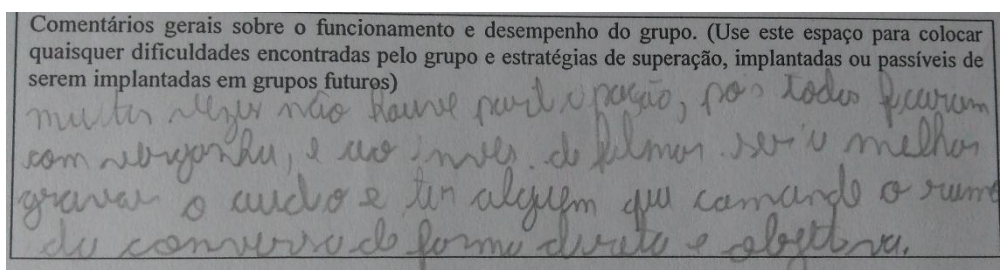 Comentários gerais sobre o funcionamento e desempenho do grupo. (Use este espaço para colocar
quaisquer dificuldades encontradas pelo grupo e estratégias de superação, implantadas ou passíveis de
serem implantadas em grupos futuros)
muitas vezes não houve participação, pois todos ficaram
com vergonha, e ao invés de filmar seria melhor
gravar o audio e ter alguem que comande o rumo
da conversa de forma direta e objetiva.